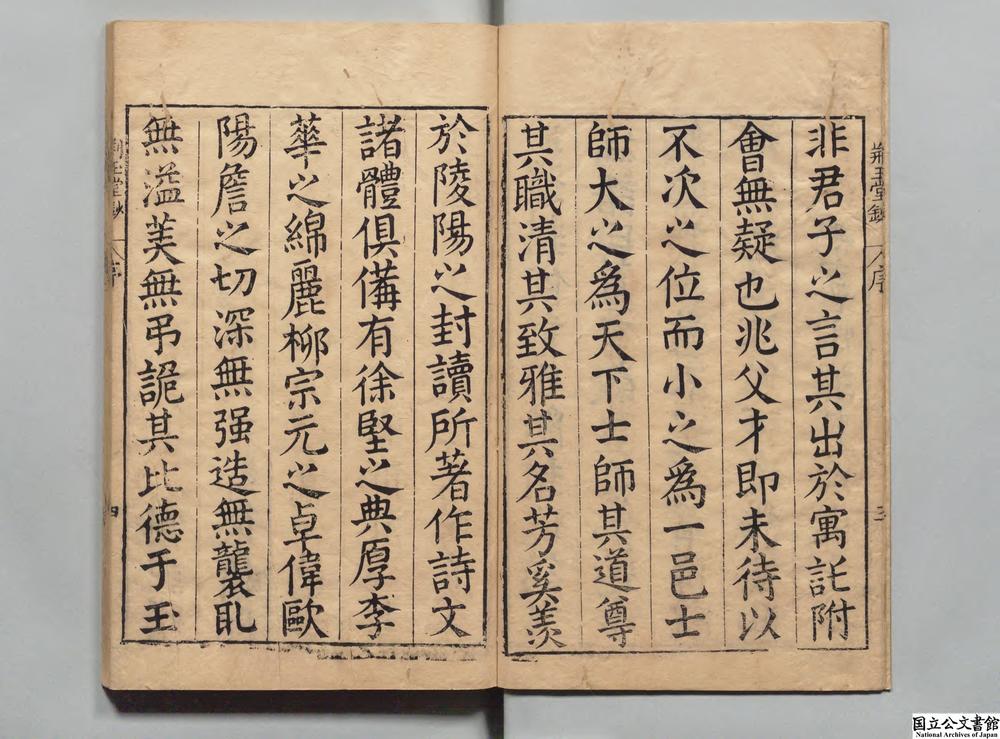 非君子之言其出於寓託附
會無疑也兆父才即未待以
不次之位而小之爲一邑士
師大之爲天下士師其道尊
其職清其致雅其名芳奚羨
於陵陽之封讀所著作詩文
諸體俱備有徐堅之典厚李
華之綿麗柳宗元之卓偉歐
陽詹之切深無强造無襲㽷
無溢美無弔詭其比德于玉
荊玉堂鈔
序
三
序
四
国立公文書館
National Archives of Japan